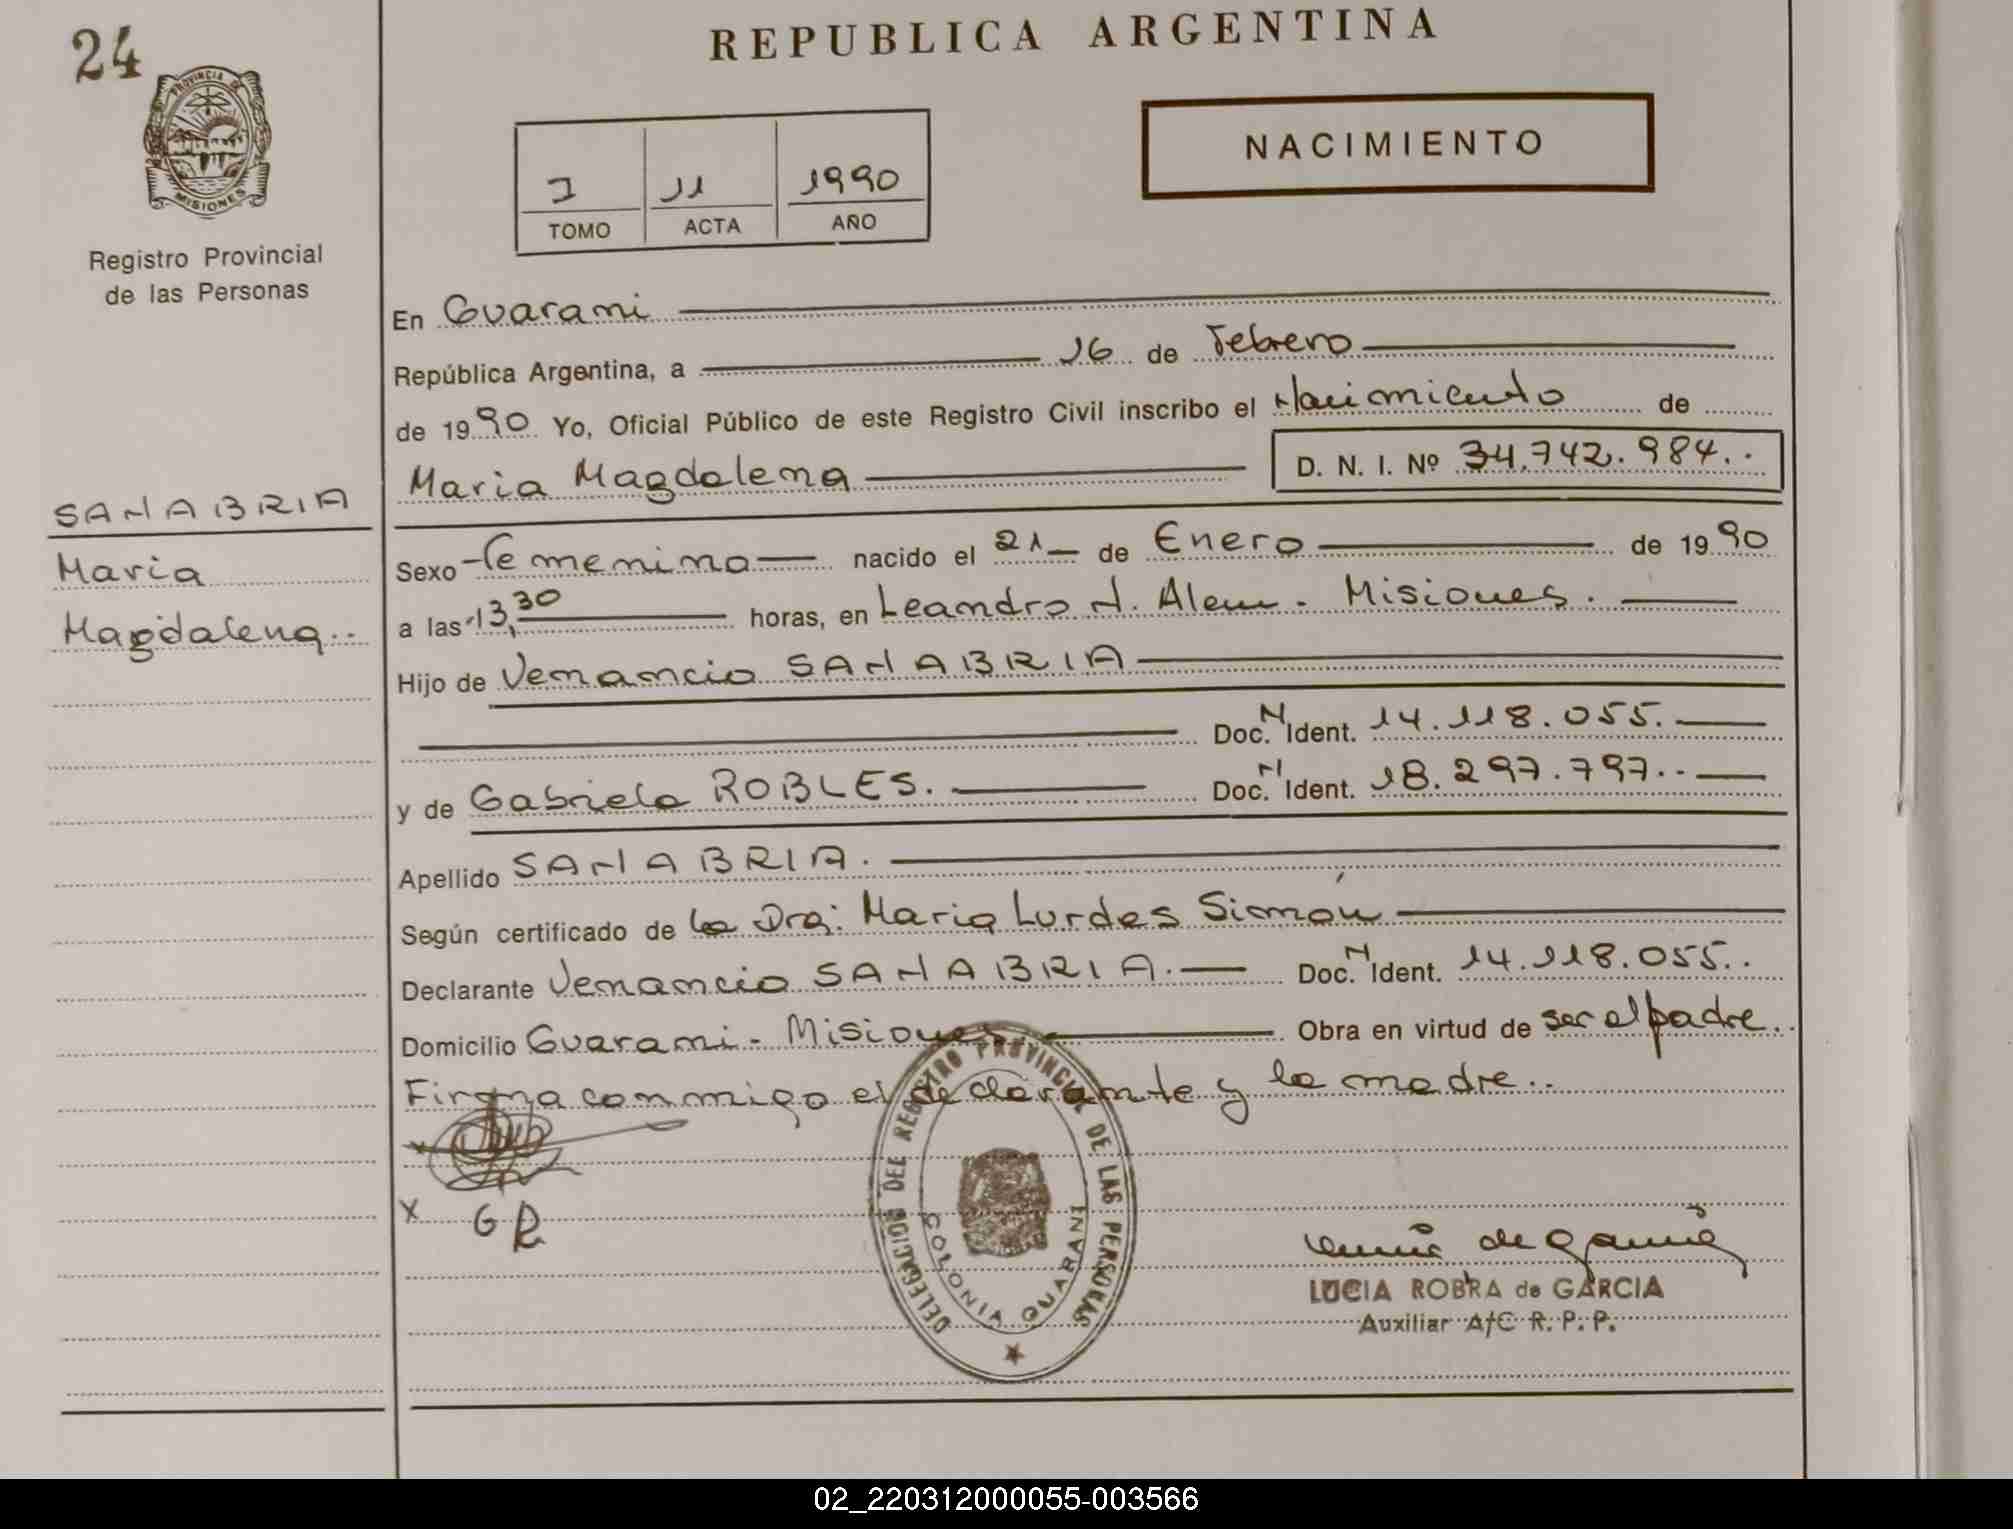 24
REPUBLICA ARGENTINA
PROVINCIA DE
MISIONES
Registro Provincial
de las Personas
I 11 1990
TOMO ACTA AÑO
NACIMIENTO
En Guarani
República Argentina, a 16 de Febrero
de 1990 Yo, Oficial Público de este Registro Civil inscribo el Nacimiento de
Maria Magdalena D. N. I. Nº 34.742.984..
SANABRIA
Maria
Magdalena..
Sexo Femenino nacido el 21 de Enero de 1990
a las 13,30 horas, en Leandro N. Alem - Misiones.
Hijo de Venancio SANABRIA
Doc. N Ident. 14.118.055.
y de Gabriela ROBLES. Doc. N Ident. 18.297.797..
Apellido SANABRIA.
Según certificado de la Dra: Maria Lurdes Simón
Declarante Venancio SANABRIA. Doc. N Ident. 14.118.055..
Domicilio Guarani - Misiones Obra en virtud de ser el padre..
Firma conmigo el declarante y la madre..
x
x GR
DELEGACION DEL REGISTRO PROVINCIAL DE LAS PERSONAS
COLONIA GUARANI
LUCIA ROBRA de GARCIA
Auxiliar A/C R. P. P.
02_220312000055-003566